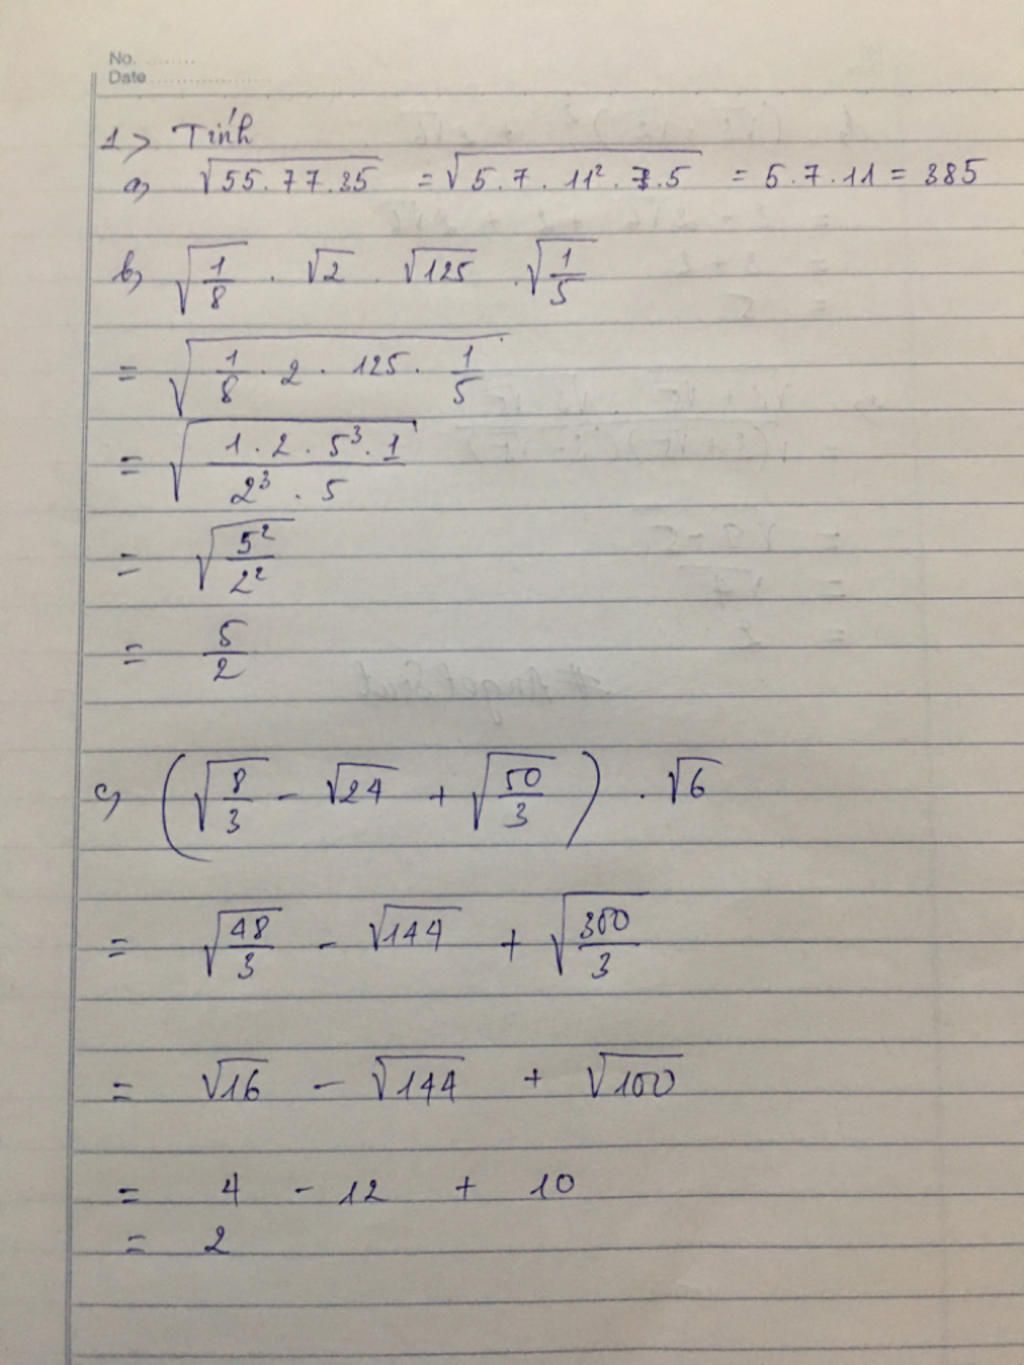 No. ........
Date ..................
1> Tính
a) √55.77.35 = √5.7.11².7.5 = 5.7.11 = 385
b) √(1/8) . √2 . √125 . √(1/5)
= √(1/8 . 2 . 125 . 1/5)
= √((1.2.5³.1)/(2³.5))
= √(5²/2²)
= 5/2
c) (√(8/3) - √24 + √(50/3)) . √6
= √(48/3) - √144 + √(300/3)
= √16 - √144 + √100
= 4 - 12 + 10
= 2